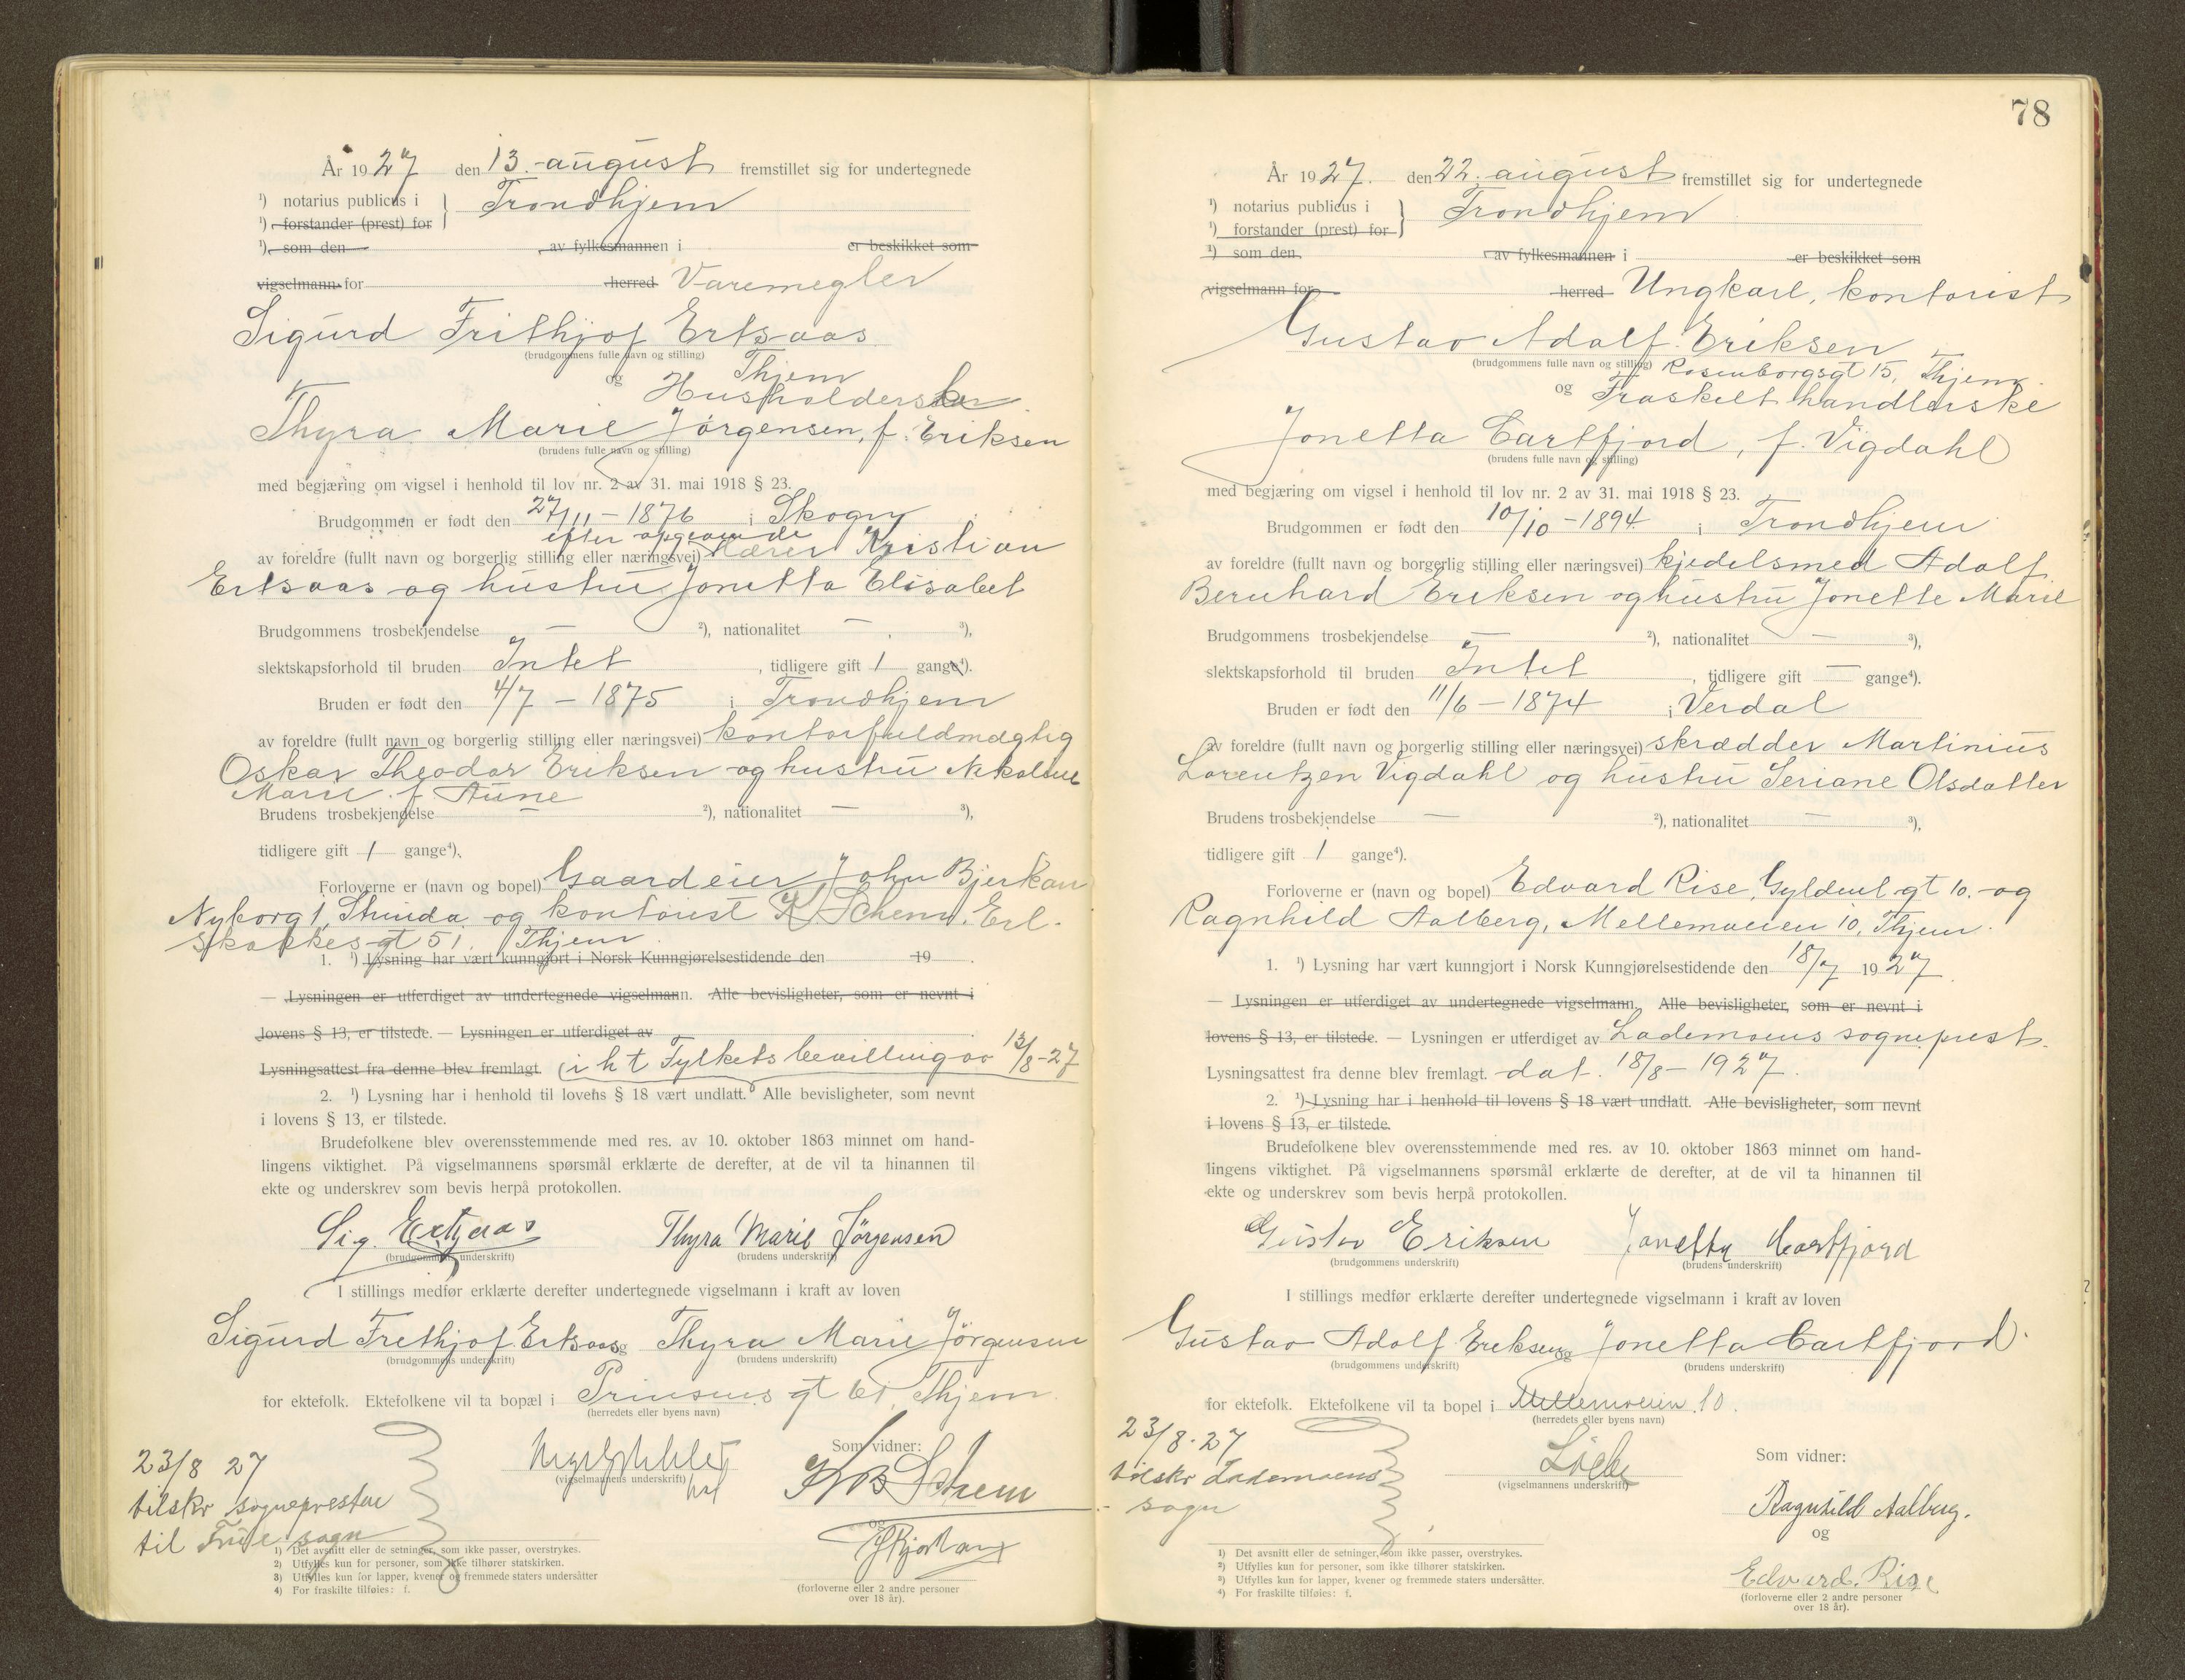 År 1927 den 13. august fremstillet sig for undertegnede
¹) notarius publicus i Trondhjem
¹) forstander (prest) for
¹) som den av fylkesmannen i er beskikket som
vigselmann for herred Varemegler
Sigurd Frithjof Ertsaas
(brudgommens fulle navn og stilling)
Thjem
og Husholderske
Thyra Marie Jörgensen, f. Eriksen
(brudens fulle navn og stilling)
med begjæring om vigsel i henhold til lov nr. 2 av 31. mai 1918 § 23.
Brudgommen er født den 27/11 - 1876 i Skogn
efter opgivende
av foreldre (fullt navn og borgerlig stilling eller næringsvei) Lærer Kristian
Ertsaas og hustru Jonetta Elisabet
Brudgommens trosbekjendelse — ²), nationalitet — ³),
slektskapsforhold til bruden Intet, tidligere gift 1 gange⁴).
Bruden er født den 4/7 - 1875 i Trondhjem
av foreldre (fullt navn og borgerlig stilling eller næringsvei) kontorfuldmægtig
Oskar Theodor Eriksen og hustru Nikoline
Marie f. Aune
Brudens trosbekjendelse — ²), nationalitet — ³),
tidligere gift 1 gange⁴).
Forloverne er (navn og bopel) Gaardeier John Bjerkan
Nyborg 1, Strinda og kontorist K. Schem. Erl.
Skakkes gt 51. Thjem.
1. ¹) Lysning har vært kunngjort i Norsk Kunngjørelsestidende den 19 .
— Lysningen er utferdiget av undertegnede vigselmann. Alle bevisligheter, som er nevnt i
lovens § 13, er tilstede. — Lysningen er utferdiget av
Lysningsattest fra denne blev fremlagt. (i h t Fylkets bevilling av 13/8-27
2. ¹) Lysning har i henhold til lovens § 18 vært undlatt.) Alle bevisligheter, som nevnt
i lovens § 13, er tilstede.
Brudefolkene blev overensstemmende med res. av 10. oktober 1863 minnet om hand-
lingens viktighet. På vigselmannens spørsmål erklærte de derefter, at de vil ta hinannen til
ekte og underskrev som bevis herpå protokollen.
Sig. Ertsaas Thyra Marie Jörgensen
(brudgommens underskrift) (brudens underskrift)
I stillings medfør erklærte derefter undertegnede vigselmann i kraft av loven
Sigurd Frethjof Ertsaas og Thyra Marie Jörgensen
(brudgommens underskrift) (brudens underskrift)
for ektefolk. Ektefolkene vil ta bopæl i Prinsens gt 61, Thjem.
(herredets eller byens navn)
Som vidner:
(vigselmannens underskrift)
K B Schem
og
J Bjerkan
(forloverne eller 2 andre personer
over 18 år).
23/8 27
tilskr sognepresten
til Frue sogn
1) Det avsnitt eller de setninger, som ikke passer, overstrykes.
2) Utfylles kun for personer, som ikke tilhører statskirken.
3) Utfylles kun for lapper, kvener og fremmede staters undersåtter
4) For fraskilte tilføies: f.
78
År 1927. den 22. august fremstillet sig for undertegnede
¹) notarius publicus i Trondhjem
¹) forstander (prest) for
¹) som den av fylkesmannen i er beskikket som
vigselmann for herred Ungkarl, kontorist
Gustav Adolf Eriksen
(brudgommens fulle navn og stilling) Rosenborgsgt 15, Thjem.
og Fraskelt handlerske
Jonetta Cartfjord, f. Vigdahl
(brudens fulle navn og stilling)
med begjæring om vigsel i henhold til lov nr. 2 av 31. mai 1918 § 23.
Brudgommen er født den 10/10 - 1894 i Trondhjem
av foreldre (fullt navn og borgerlig stilling eller næringsvei) kjedelsmed Adolf
Bernhard Eriksen og hustru Jonette Marie
Brudgommens trosbekjendelse — ²), nationalitet — ³),
slektskapsforhold til bruden Intet, tidligere gift — gange⁴).
Bruden er født den 11/6 - 1874 i Verdal
av foreldre (fullt navn og borgerlig stilling eller næringsvei) skrædder Martinius
Lorentzen Vigdahl og hustru Seriane Olsdatter
Brudens trosbekjendelse — ²), nationalitet — ³),
tidligere gift 1 gange⁴).
Forloverne er (navn og bopel) Edvard Rise, Gyldenl. gt 10. og
Ragnhild Aalberg, Mellemveien 10, Thjem.
1. ¹) Lysning har vært kunngjort i Norsk Kunngjørelsestidende den 18/7 1927.
— Lysningen er utferdiget av undertegnede vigselmann. Alle bevisligheter, som er nevnt i
lovens § 13, er tilstede. — Lysningen er utferdiget av Lademoens sogneprest.
Lysningsattest fra denne blev fremlagt. dat. 18/8 - 1927.
2. ¹) Lysning har i henhold til lovens § 18 vært undlatt. Alle bevisligheter, som nevnt
i lovens § 13, er tilstede.
Brudefolkene blev overensstemmende med res. av 10. oktober 1863 minnet om hand-
lingens viktighet. På vigselmannens spørsmål erklærte de derefter, at de vil ta hinannen til
ekte og underskrev som bevis herpå protokollen.
Gustav Eriksen Jonetta Cartfjord
(brudgommens underskrift) (brudens underskrift)
I stillings medfør erklærte derefter undertegnede vigselmann i kraft av loven
Gustav Adolf Eriksen og Jonetta Cartfjord.
(brudgommens underskrift) (brudens underskrift)
for ektefolk. Ektefolkene vil ta bopel i Mellemveien 10.
(herredets eller byens navn)
Som vidner:
(vigselmannens underskrift)
Ragnhild Aalberg.
og
Edvard Rise
(forloverne eller 2 andre personer
over 18 år).
23/8-27
tilskr Lademoens
sogn
1) Det avsnitt eller de setninger, som ikke passer, overstrykes.
2) Utfylles kun for personer, som ikke tilhører statskirken.
3) Utfylles kun for lapper, kvener og fremmede staters undersåtter.
4) For fraskilte tilføies: f.